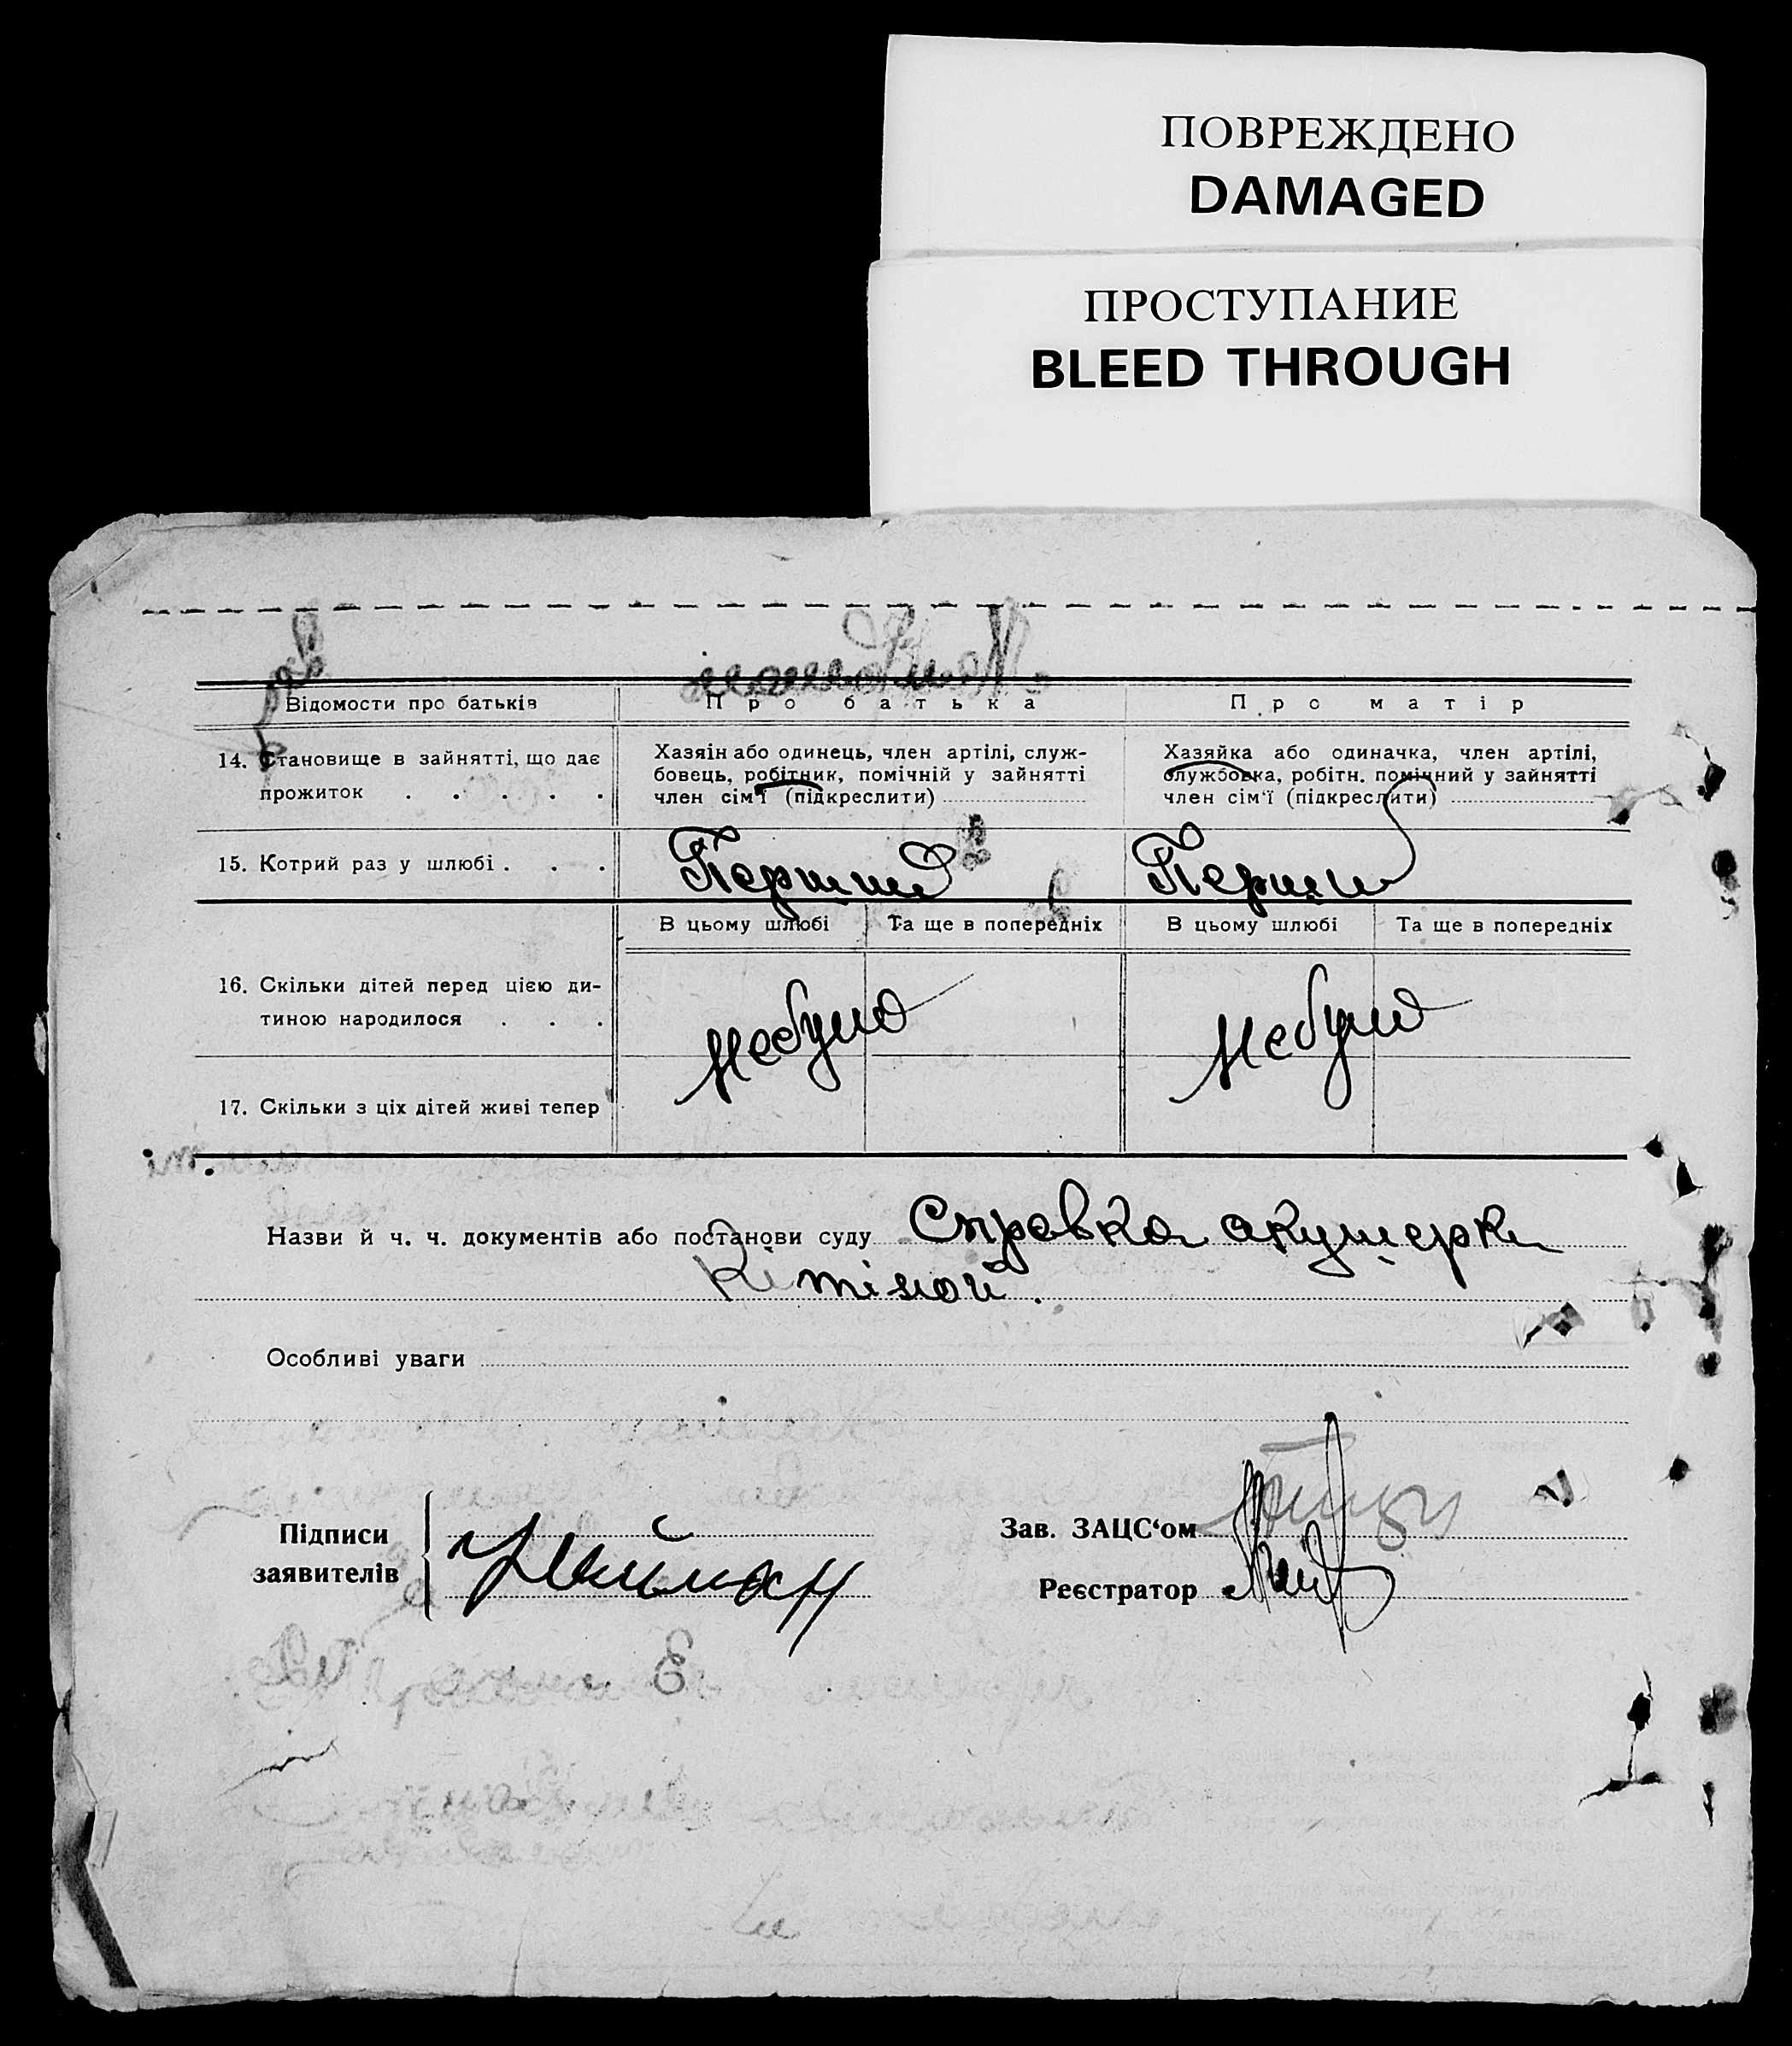 ПОВРЕЖДЕНО
DAMAGED
ПРОСТУПАНИЕ
BLEED THROUGH
Відомости про батьків Про батька Про матір
14. Становище в зайнятті, що дає прожиток . . . . .
Хазяїн або одинець, член артілі, служ-
бовець, робітник, помічній у зайнятті
член сім'ї (підкреслити)
Хазяйка або одиначка, член артілі,
службовка, робітн. помічний у зайнятті
член сім'ї (підкреслити)
15. Котрий раз у шлюбі . . . Перший Перши
В цьому шлюбі Та ще в попередніх В цьому шлюбі Та ще в попередніх
16. Скільки дітей перед цією ди-
тиною народилося . . .
Небуло Небуло
17. Скільки з ціх дітей живі тепер
Назви й ч. ч. документів або постанови суду Справка акушерки
Особливі уваги
Підписи
заявителів
Зав. ЗАЦС‘ом
Реєстратор